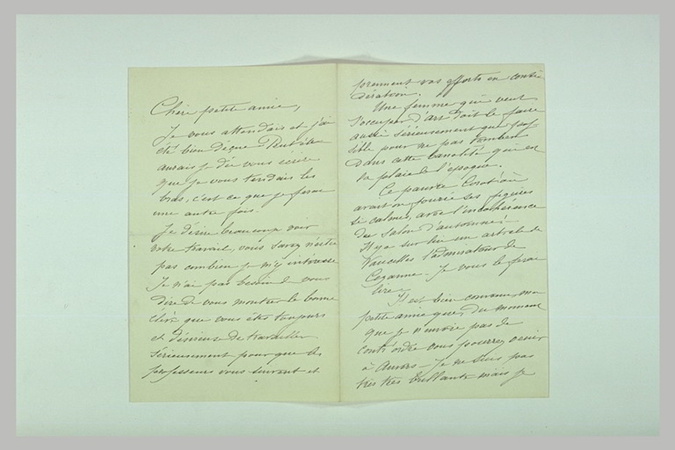 Chère petite amie,
Je vous attendais et j'ai
été bien déçue. Peut être
aurais-je dû vous écrire
que je vous tendais les
bras, c'est ce que je ferai
une autre fois.
Je désire beaucoup voir
votre travail, vous savez
pas combien je m'y intéresse
Je n'ai pas besoin de vous
dire de vous montrer la bonne
élève que vous êtes toujours
et désireuse de travailler
sérieusement pour que les
professeurs vous suivent et
prennent vos efforts en consi
dération.
Une femme qui veut
s'occuper d'art doit le faire
aussi sérieusement que pos
sible pour ne pas tomber
dans cette banalité qui est
la plaie de l'époque.
Ce pauvre
avait on fourré ses figures
de
du Salon d'automne!
Il y a sur lui un article de
Vauxcelles l'admirateur de
Cezanne. Je vous le ferai
lire.
Il est bien convenu, ma
petite amie que, du moment
que je n'envoie pas de
contr'ordre vous pourrez venir
à Je ne suis pas
très très brillante mais je